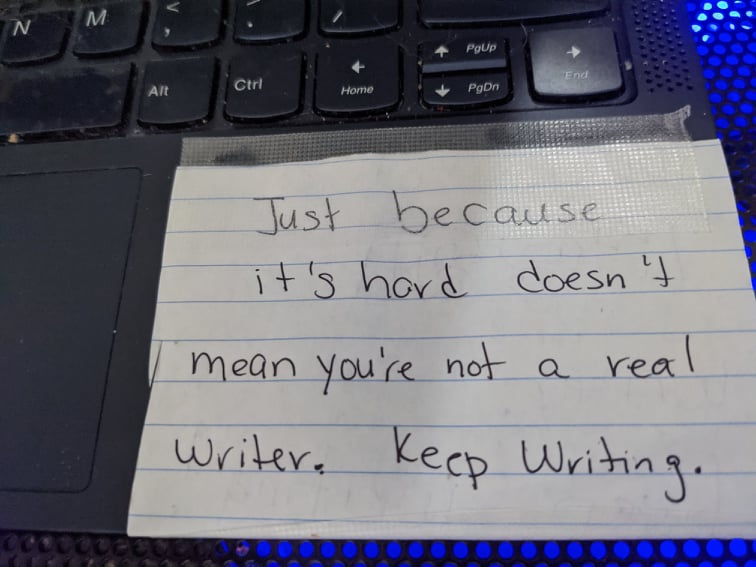 N M < , > . ? /
Alt Ctrl ← Home ↑ PgUp ↓ PgDn → End
Just because
it's hard doesn't
mean you're not a real
Writer. Keep Writing.